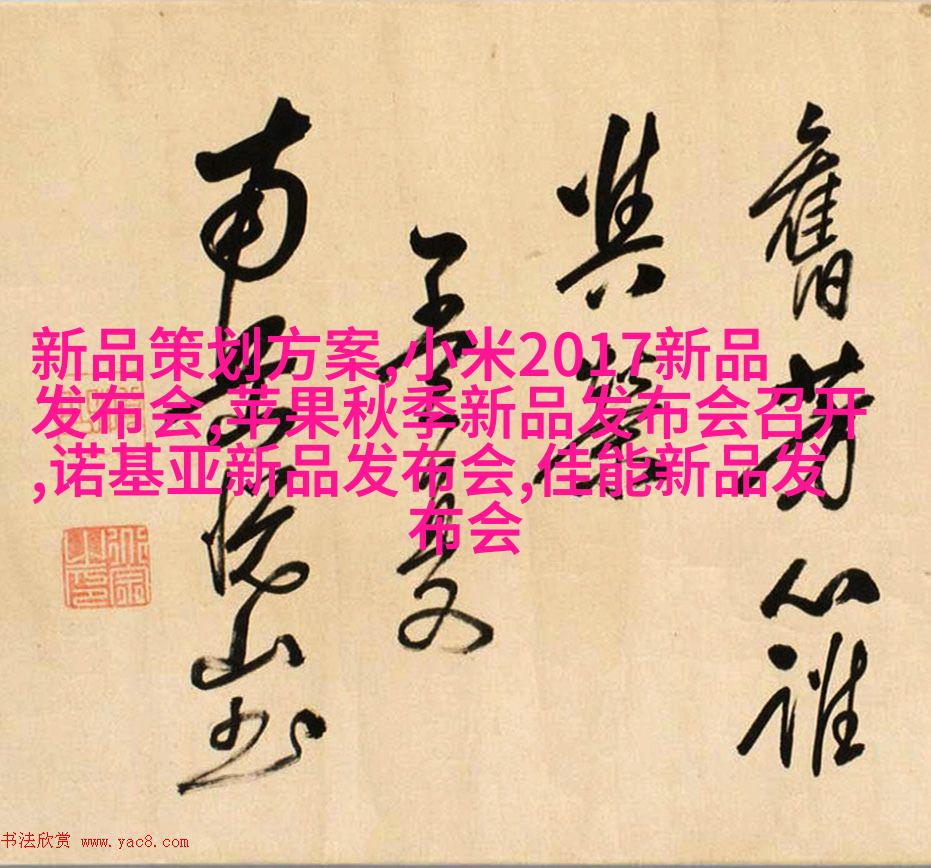 新品策划方案,小米2017新品
发布会,苹果秋季新品发布会召开
,诺基亚新品发布会,佳能新品发
布会
舊芳心誰
與
夏
南岳悅山书
书法欣赏 www.yac8.com